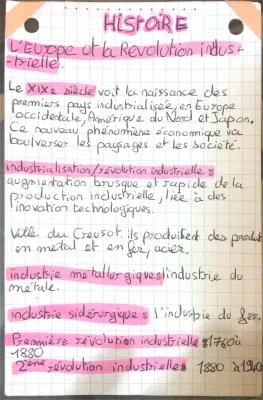 HISTOIRE
L'Europe et la Revolution indus-
-trielle.
Le XIXe siècle voit la naissance des
premiers pays industrialisée, en Europe
occidentale, Amérique du Nord et Japon.
Ce nouveau phénomène économique va
boulverser les paysages et les société.
industrialisation/révolution industrielle :
augmentation brusque et rapide de la
production industrielle, liée à des
inovation technologiques.
Ville du Creusot. ils produisent des produit
en métal et en fer, acier.
industrie métallurgique: l'industrie du
métale.
industrie sidérurgique : l'industrie du fer.
Première révolution industrielle : 1760 à
1880
2ème révolution industrielle : 1880 à 1940